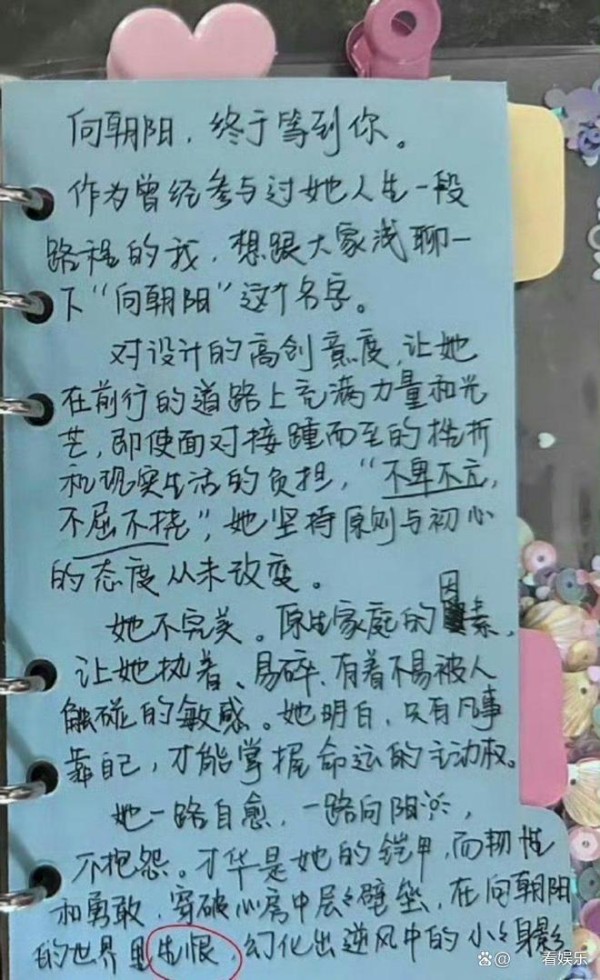 向朝阳，终于等到你。
作为曾经参与过她人生一段
路程的我，想跟大家浅聊一
下“向朝阳”这个名字。
对设计的高创意度，让她
在前行的道路上充满力量和光
芒，即使面对接踵而至的挫折
和现实生活的负担，“不卑不亢，
不屈不挠”，她坚持原则与初心
的态度从未改变。
她不完美。原生家庭的因素，
让她执着、易碎、有着不易被人
触碰的敏感。她明白，只有凡事
靠自己，才能掌握命运的主动权。
她一路自愈，一路向阳，
不抱怨。才华是她的铠甲，而韧性
和勇敢，穿破心房中层层壁垒，在向朝阳
的世界里生恨，幻化出逆风中的小小身影
看娱乐